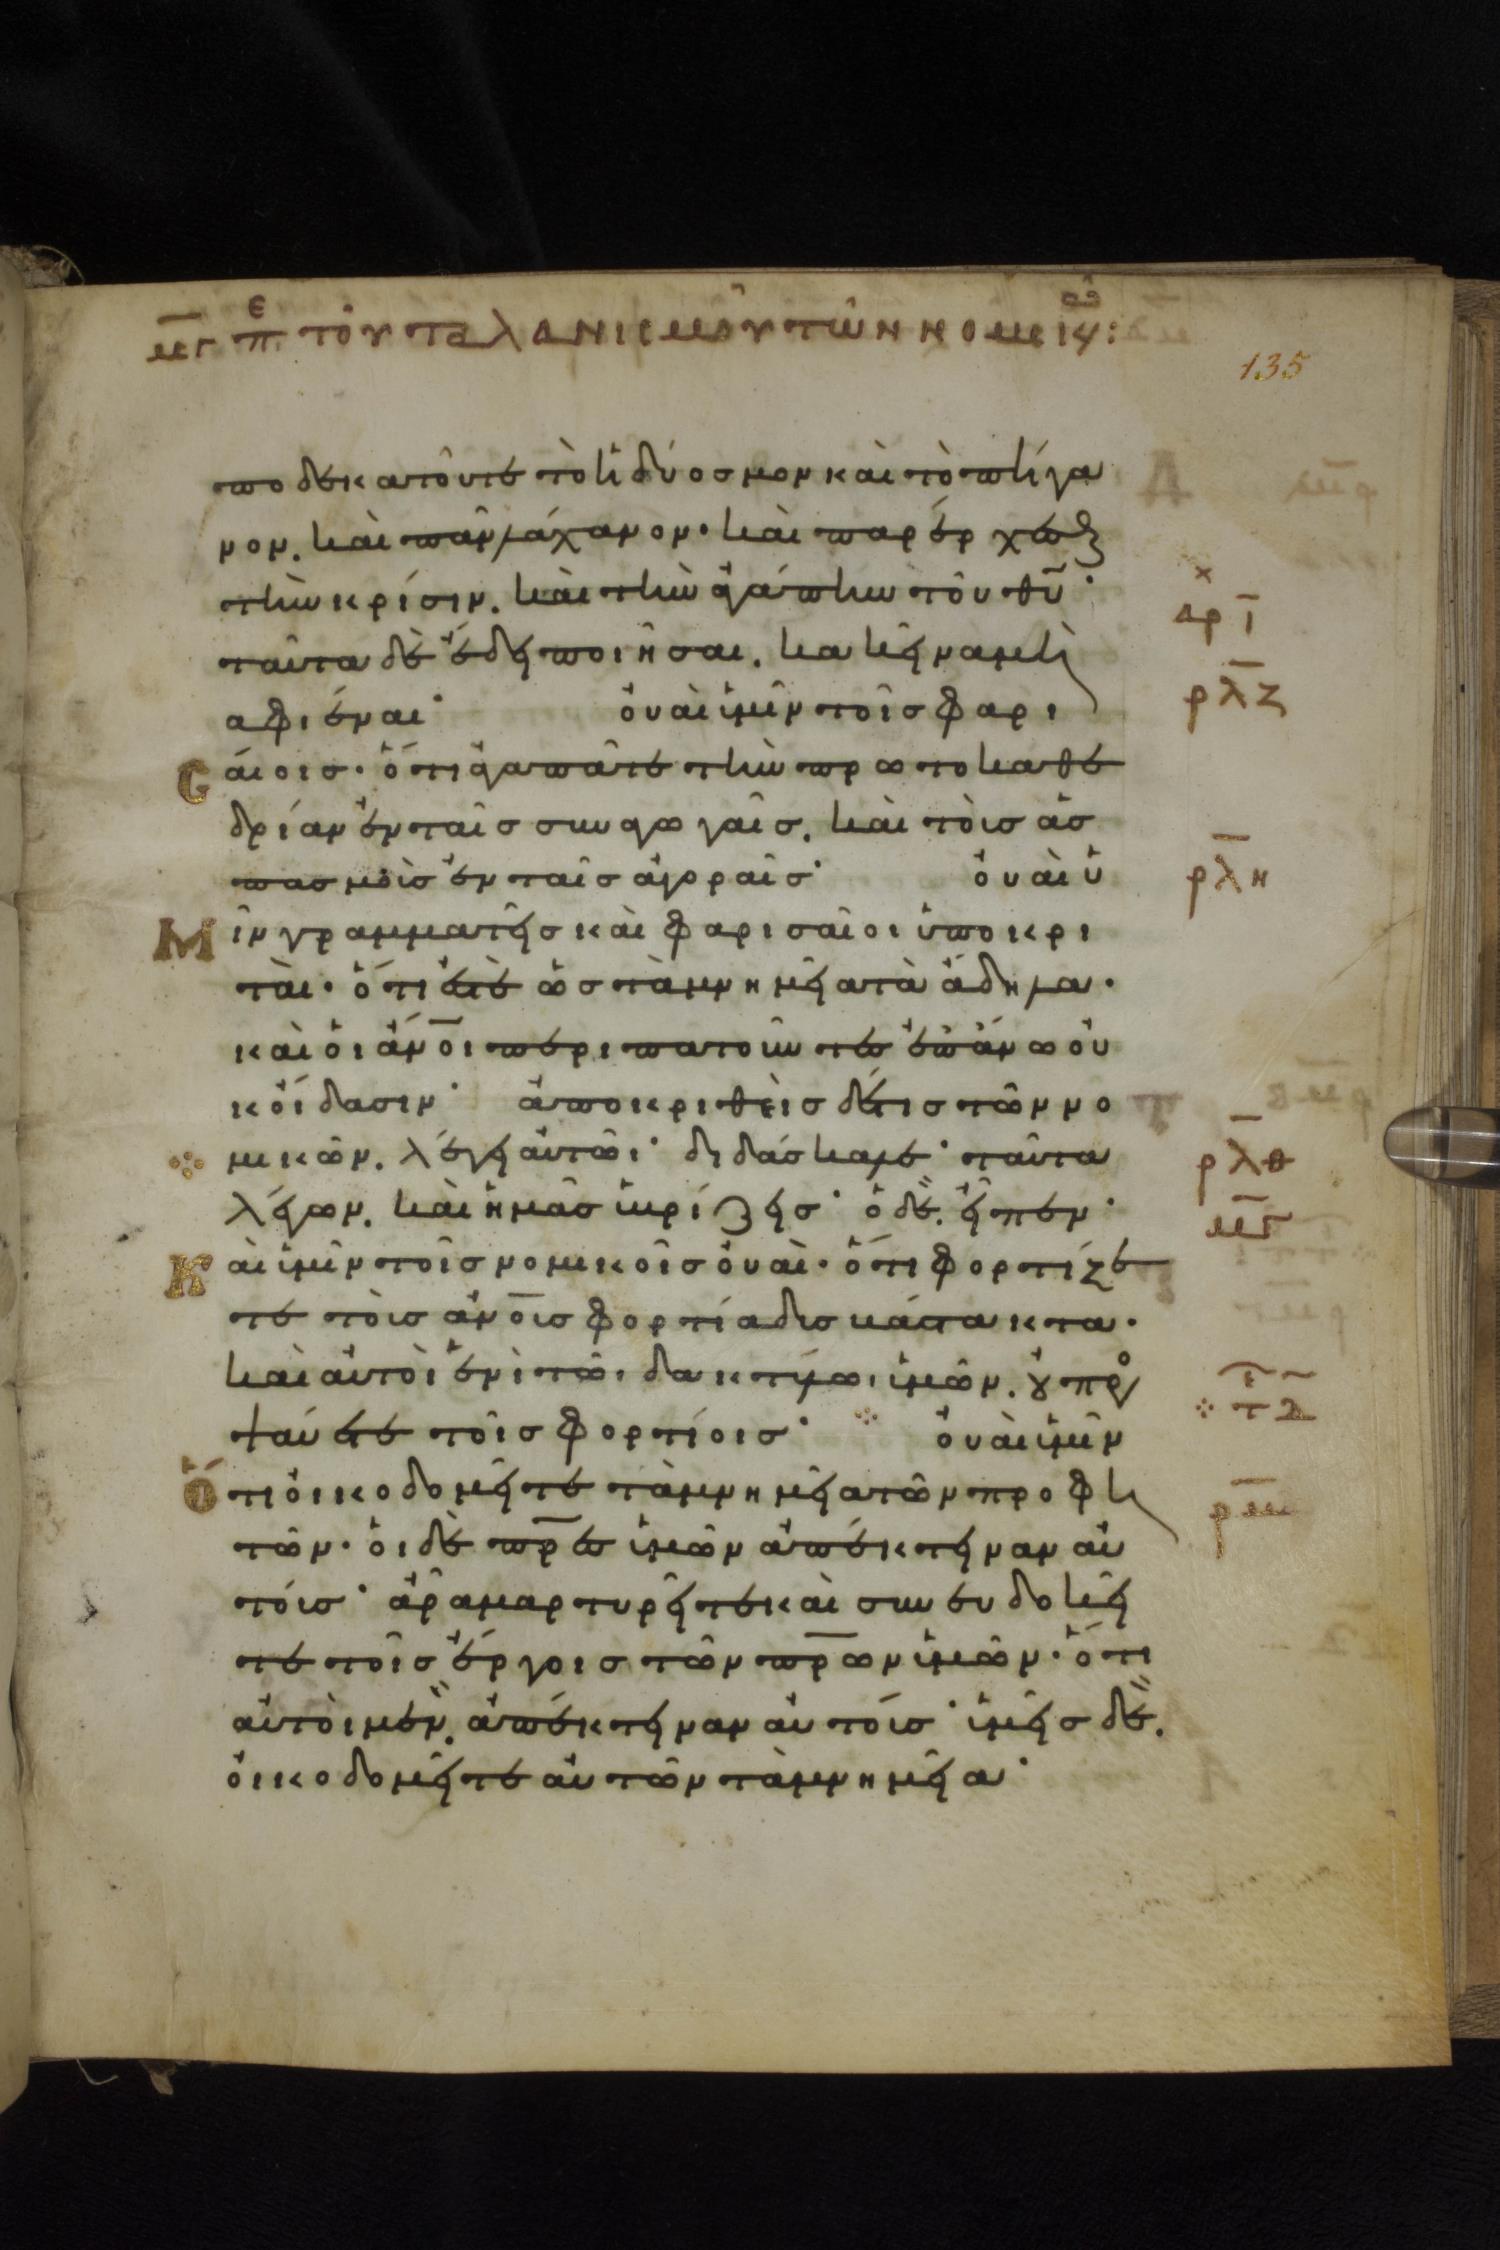 μγ πε τοῦ ταλανισμοῦ τῶν νομικῶν:
135
ποδεκατοῦντε τὸ ἡδύοσμον καὶ τὸ πήγα
νον. καὶ πᾶν λάχανον· καὶ παρέρχεσθε
τὴν κρίσιν. καὶ τὴν ἀγάπην τοῦ θῦ·
ταῦτα δὲ ἔδει ποιῆσαι. κακεῖνα μὴ
αφιέναι· ὀυαὶ ὑμῖν τοῖσ φαρι
σάιοισ· ὅτι ἀγαπᾶτε τὴν πρωτοκαθε
δρίαν ἐν ταῖσ συναγωγαῖσ. καὶ τοὺσ ἀσ
πασμοὺσ ἐν ταῖσ ἀγοραῖσ· ὀυαὶ ὑ
Μῖν γραμματεῖσ καὶ φαρισαῖοι ὑποκρι
ταὶ· ὅτι ἐστὲ ὡσ τὰ μνημεῖα τὰ ἄδηλα·
καὶ ὁι ἄνοι περιπατοῦντεσ ἐπάνω ὀυ
κ ὀίδασιν· ἀποκριθεὶσ δέ τισ τῶν νο
μικῶν. λέγει ἀυτῶι· διδάσκαλε· ταῦτα
λέγων. καὶ ἡμᾶσ ὑβρίζεισ· ὁ δὲ. εἶπεν·
Καὶ ὑμῖν τοῖσ νομικοῖσ ὀυαὶ· ὅτι φορτίζε
τε τοὺσ ἀνουσ φορτία δυσβάστακτα·
καὶ ἀυτοὶ ἑνὶ τῶι δακτύλωι ὑμῶν. ὀυ προσ
ψάυετε τοῖσ φορτίοισ· ὀυαὶ ὑμῖν
Ὅτι ὀικοδομεῖτε τὰ μνημεῖα τῶν προφη
τῶν· ὁι δὲ πρεσ ὑμῶν ἀπέκτειναν ἀυ
τούσ· ἄρα μαρτυρεῖτε καὶ συνευδοκεῖ
τε τοῖσ ἔργοισ τῶν πρων ὑμῶν· ὅτι
ἀυτοὶ μὲν. ἀπέκτειναν ἀυτούσ· ὑμεῖσ δὲ.
ὀικοδομεῖτε ἀυτῶν τὰ μνημεῖα·
αρχ ι
ρλζ
ρλη
ρλθ
μγ
ρμ